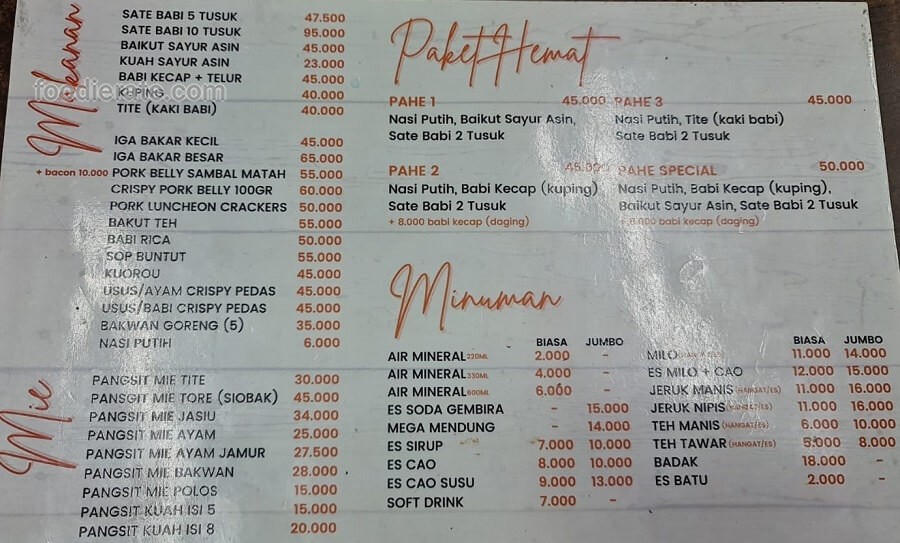 Makanan
SATE BABI 5 TUSUK 47.500
SATE BABI 10 TUSUK 95.000
BAIKUT SAYUR ASIN 45.000
KUAH SAYUR ASIN 23.000
BABI KECAP + TELUR 45.000
KUPING 40.000
TITE (KAKI BABI) 40.000
IGA BAKAR KECIL 45.000
IGA BAKAR BESAR 65.000
+ bacon 10.000 PORK BELLY SAMBAL MATAH 55.000
CRISPY PORK BELLY 100GR 60.000
PORK LUNCHEON CRACKERS 50.000
BAKUT TEH 55.000
BABI RICA 50.000
SOP BUNTUT 55.000
KUOROU 45.000
USUS/AYAM CRISPY PEDAS 45.000
USUS/BABI CRISPY PEDAS 45.000
BAKWAN GORENG (5) 35.000
NASI PUTIH 6.000
Mie
PANGSIT MIE TITE 30.000
PANSGIT MIE TORE (SIOBAK) 45.000
PANGSIT MIE JASIU 34.000
PANGSIT MIE AYAM 25.000
PANGSIT MIE AYAM JAMUR 27.500
PANGSIT MIE BAKWAN 28.000
PANGSIT MIE POLOS 15.000
PANGSIT KUAH ISI 5 15.000
PANGSIT KUAH ISI 8 20.000
Paket Hemat
PAHE 1 45.000
Nasi Putih, Baikut Sayur Asin,
Sate Babi 2 Tusuk
PAHE 3 45.000
Nasi Putih, Tite (kaki babi)
Sate Babi 2 Tusuk
PAHE 2 45.000
Nasi Putih, Babi Kecap (kuping)
Sate Babi 2 Tusuk
+ 8.000 babi kecap (daging)
PAHE SPECIAL 50.000
Nasi Putih, Babi Kecap (kuping),
Baikut Sayur Asin, Sate Babi 2 Tusuk
+ 8.000 babi kecap (daging)
Minuman
BIASA JUMBO
AIR MINERAL 220ML 2.000 -
AIR MINERAL 330ML 4.000 -
AIR MINERAL 600ML 6.000 -
ES SODA GEMBIRA - 15.000
MEGA MENDUNG - 14.000
ES SIRUP 7.000 10.000
ES CAO 8.000 10.000
ES CAO SUSU 9.000 13.000
SOFT DRINK 7.000 -
BIASA JUMBO
MILO 11.000 14.000
ES MILO + CAO 12.000 15.000
JERUK MANIS (HANGAT/ES) 11.000 16.000
JERUK NIPIS (HANGAT/ES) 11.000 16.000
TEH MANIS (HANGAT/ES) 6.000 10.000
TEH TAWAR (HANGAT/ES) 5.000 8.000
BADAK 18.000 -
ES BATU 2.000 -